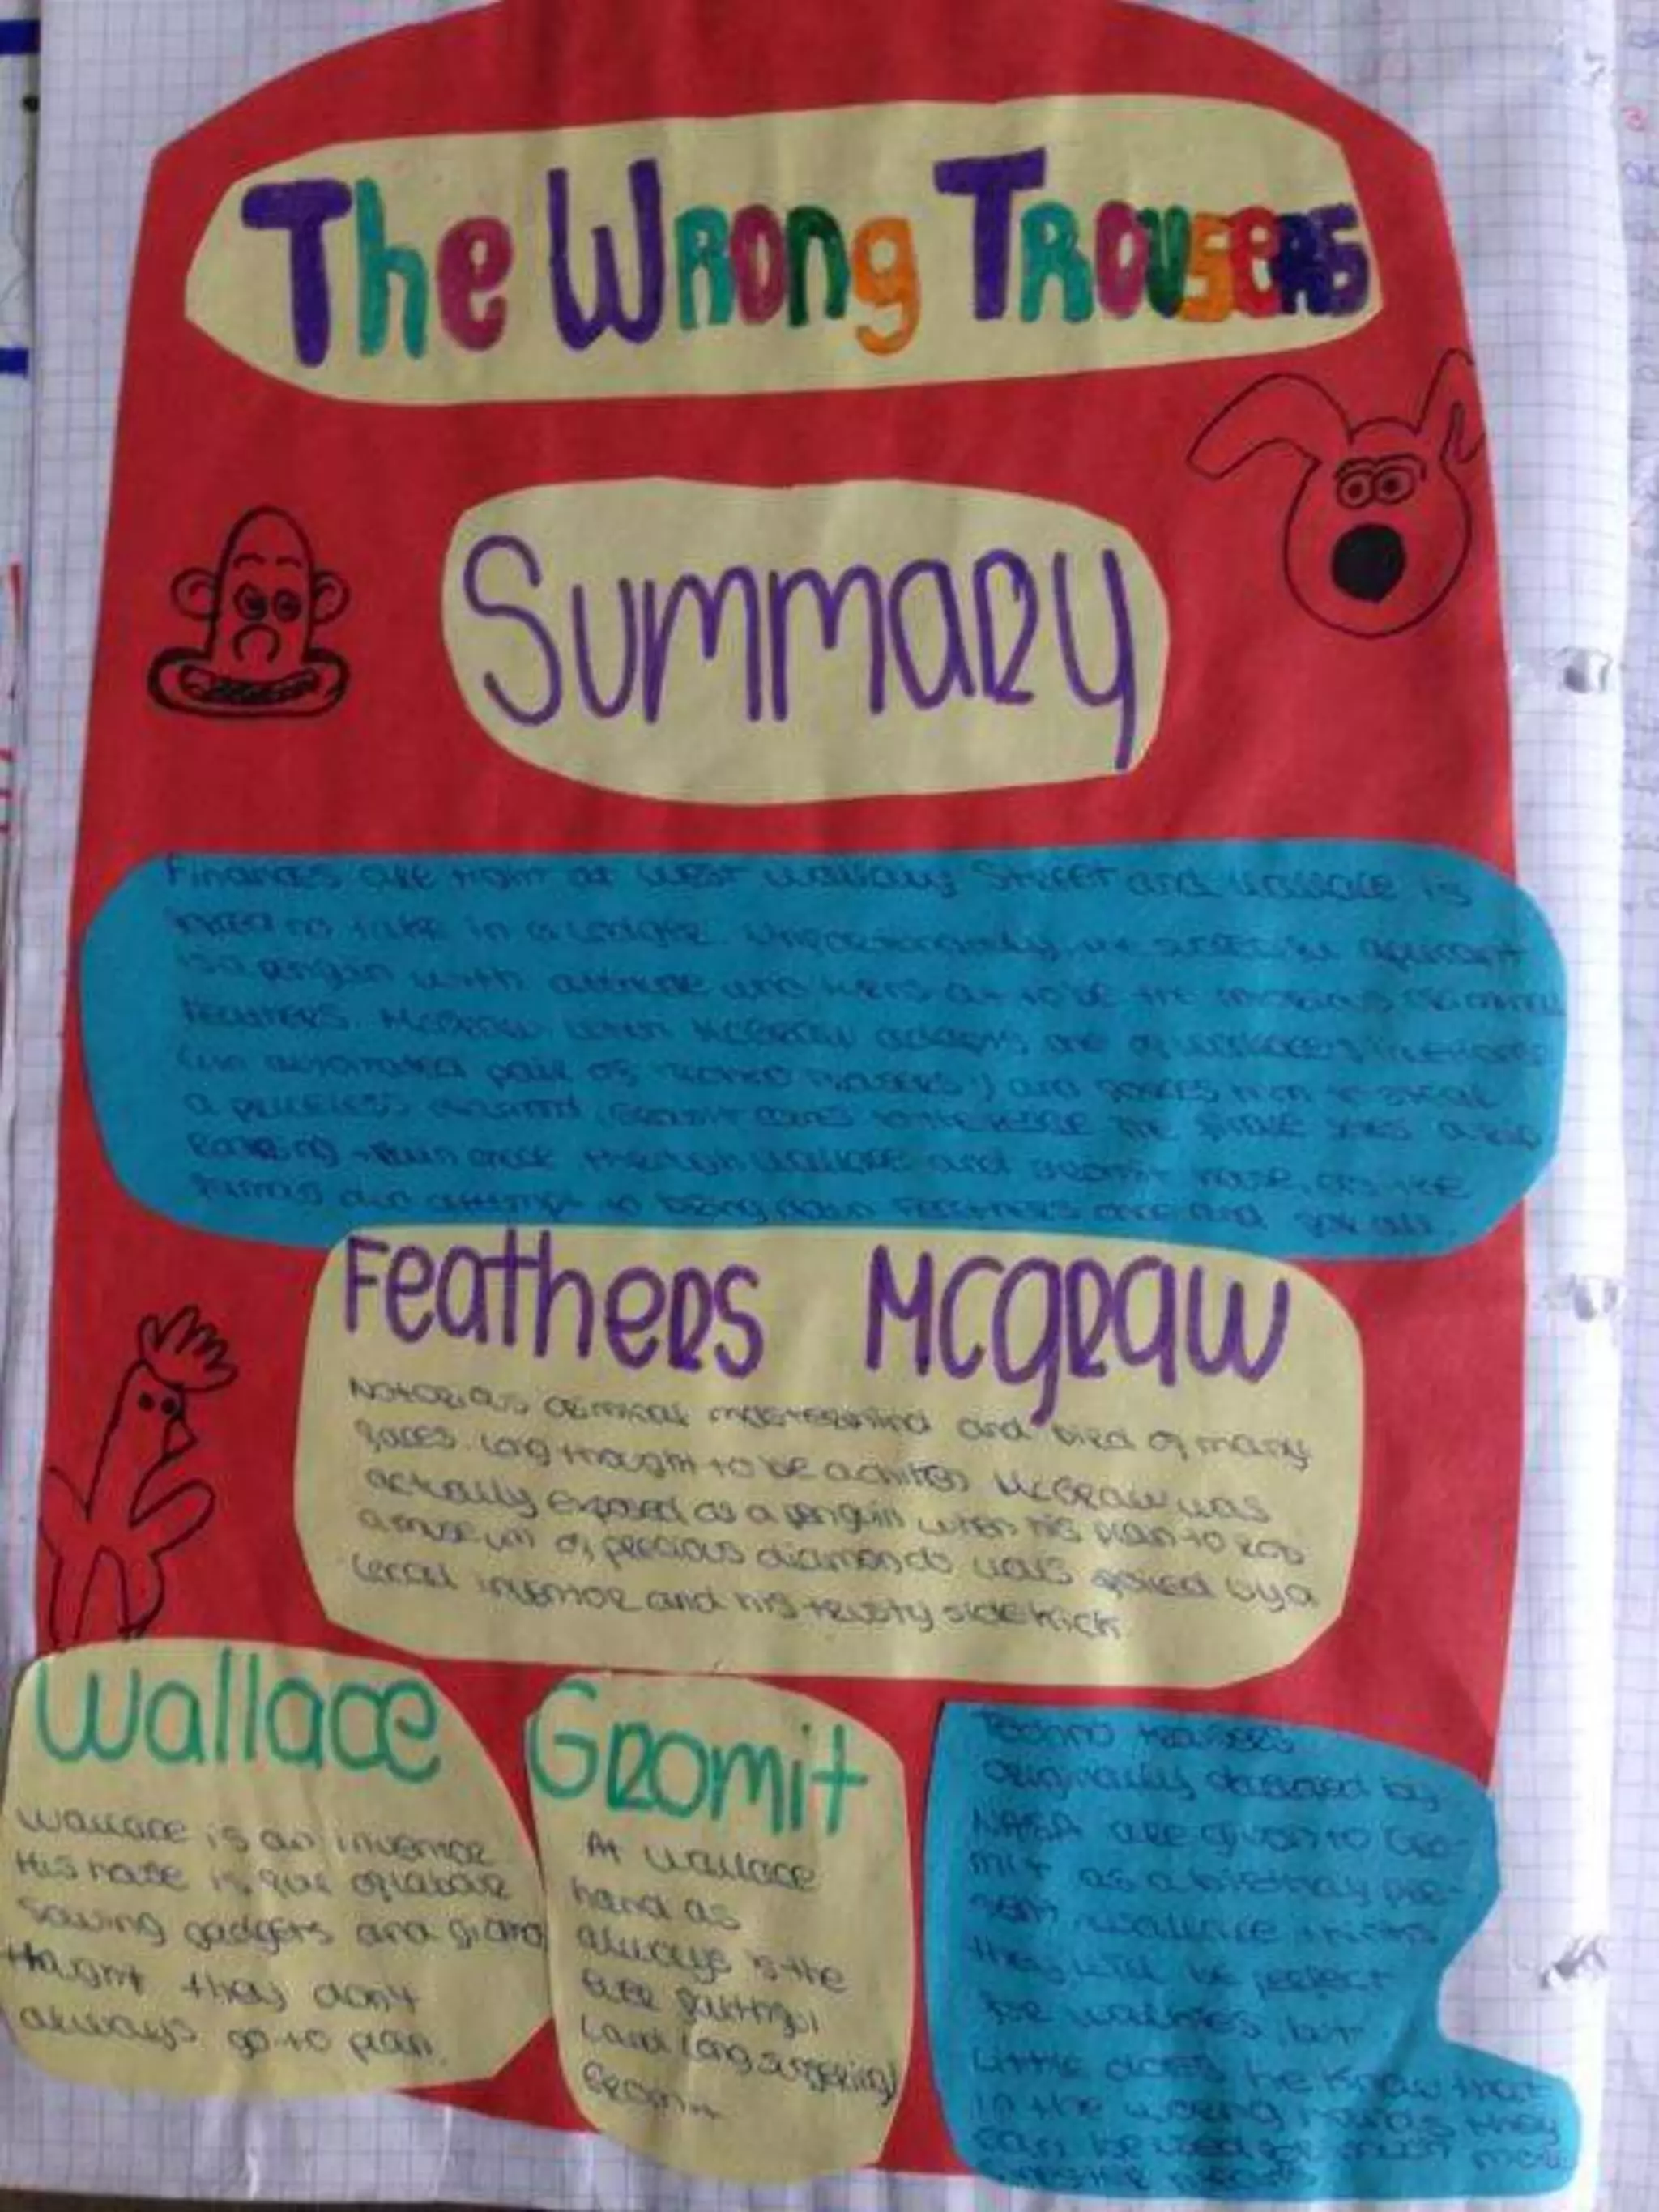 The Wrong Trousers
Summary
Finances are tight at West Wallaby Street and Wallace is
to take in a lodger. Unfortunately, successful
is a penguin with attitude and to be the
Feathers McGraw. When McGraw one of Wallace's
(an automated pair of techno trousers) and forces him to steal
a priceless diamond, Gromit comes to the rescue the
train once through Wallace and Gromit house, as the
attempt to bring down Feathers once and for all
Feathers McGraw
Notorious criminal mastermind and bird of many
faces. Long thought to be a chiken McGraw was
actually exposed as a penguin when his plan to rob
a museum of precious diamonds was foiled by a
Local inventor and his trusty sidekick
Wallace
Wallace is an inventor
His house is full of labour
saving gadgets and
they don't
always go to plan.
Gromit
At Wallace
hand as
always is the
ever faithful
(and long suffering)
Gromit
Techno
originally by
NASA are given to Gro-
mit as a birthday pre-
sent. Wallace thinks
they will be perfect
for walkies, but
Little does he know that
in the wrong hands they
can be used for much more